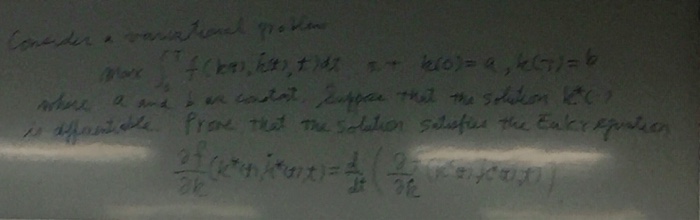 Consider a variational problem
max ∫₀ᵀ f(k(t), k̇(t), t)dt s.t k(0)=a, k(T)=b
where a and b are constant. Suppose that the solution k*(·)
is differentiable. Prove that the solution satisfies the Euler equation
∂f/∂k (k*(t), k̇*(t), t) = d/dt ( ∂f/∂k̇ (k*(t), k̇*(t), t) )